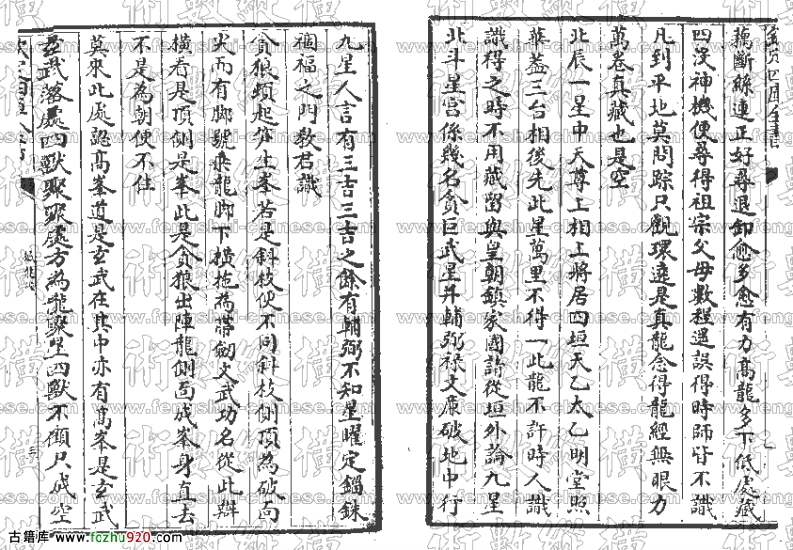 欽定四庫全書
藕斷絲連正好尋退卸愈多愈有力高龍多下低處藏
四沒神機便尋得祖宗父母數程遥誤得時師皆不識
凡到平地莫問踪只觀環遶是真龍念得龍經無眼力
萬卷真藏也是空
北辰一星中天尊上相上將居四垣天乙太乙明堂照
華盖三台相後先此星萬里不得一此龍不許時人識
識得之時不用藏留與皇朝鎮家國請從垣外論九星
北斗星宫係幾名貪巨武星并輔弼禄文亷破地中行
九星人言有三吉三吉之餘有輔弼不知星曜定錙銖
禍福之門教君識
貪狼頓起笋生峯若是斜枝便不同斜枝側頂為破面
尖而有脚號乘龍脚下横拖為帶劒文武功名從此辨
横看是頂側是峯此是貪狼出陣龍側面成峯身直去
不是為朝便不住
莫來此處認高峯道是玄武在其中亦有高峯是玄武
玄武落處四獸聚聚處方為龍聚星四獸不顧只成空
欽定四庫全書
撼龍經
三
術數縱橫
www.fengshui-chinese.com
古籍库 www.fczhu920.com